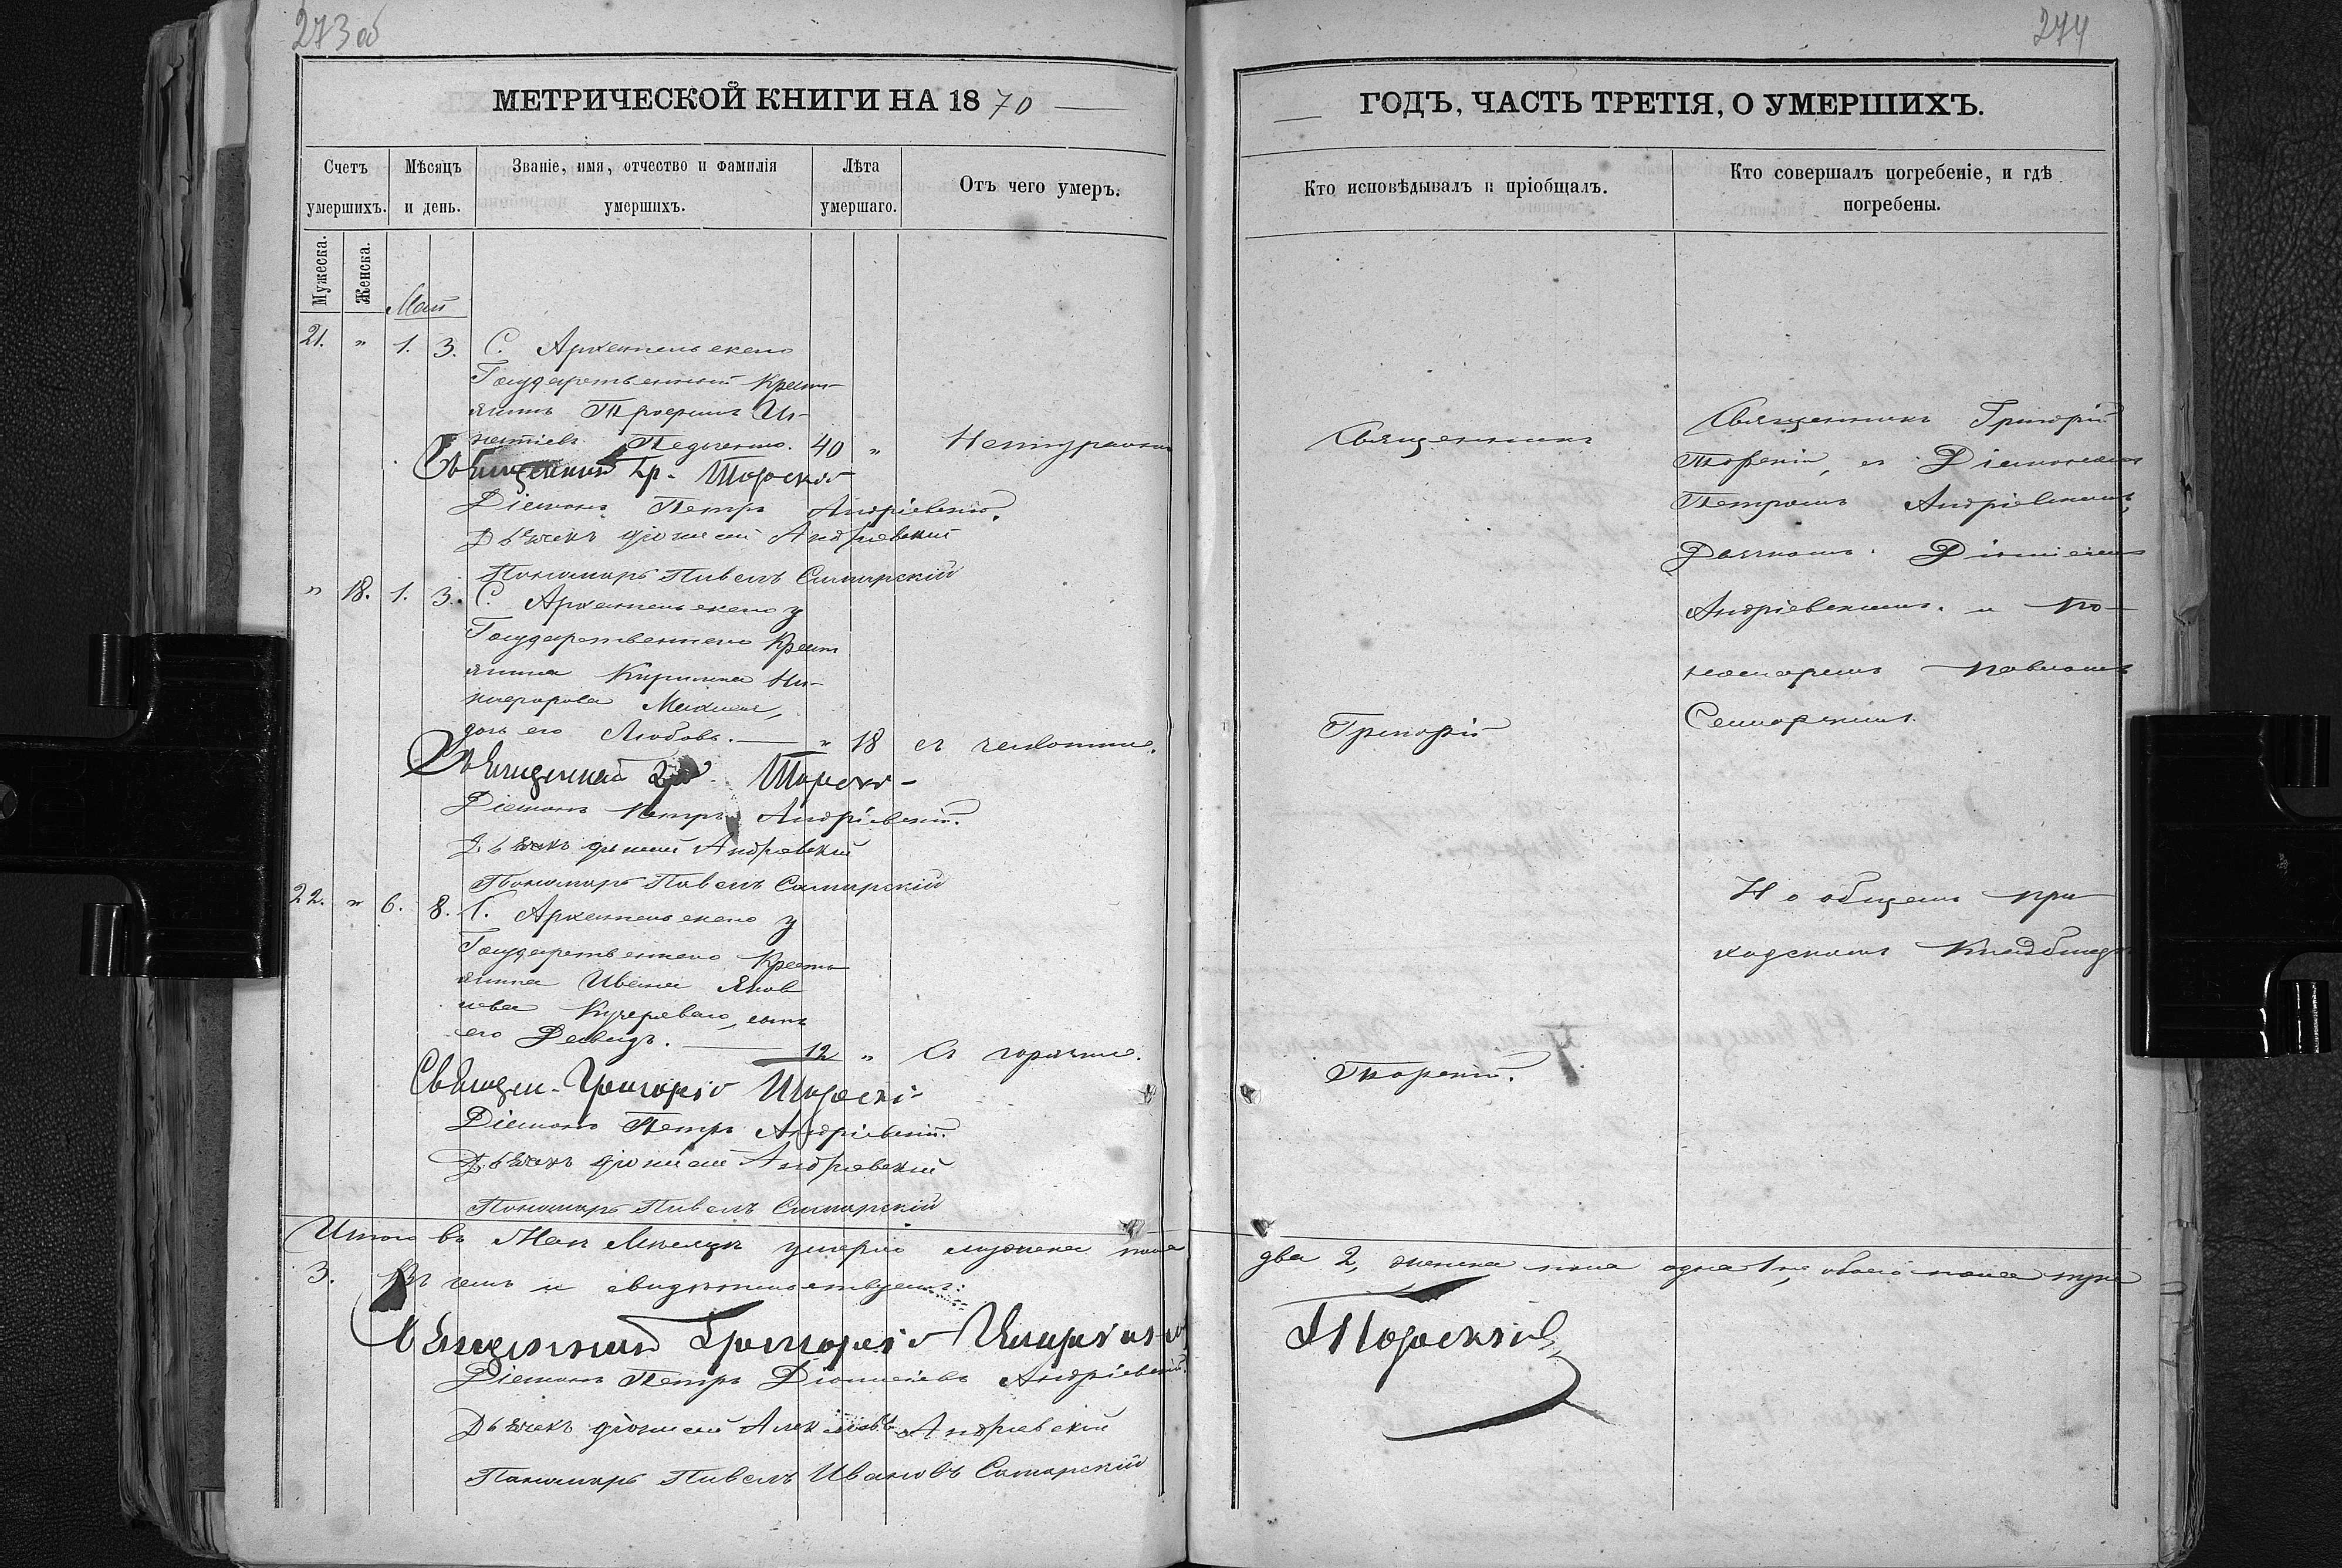 273 об
МЕТРИЧЕСКОЙ КНИГИ НА 1870
Счетъ умершихъ.
Мѣсяцъ и день.
Званіе, имя, отчество и фамилія умершихъ.
Лѣта умершаго.
Отъ чего умеръ.
Мужеска.
Женска.
Май
21. " 1. 3. С. Архангельскаго
Государственный Крестья-
янинъ Трофимъ Иг-
натіевъ Педченко. 40 "
Священникъ Гр. Торскій
Діаконъ Петръ Андріевскій.
Дьячекъ Діонисій Андріевскій
Пономарь Павелъ Самарскій
" 18. 1. 3. С. Архангельскаго у
Государственнаго Кресть
янина Кирилла Ни-
кифорова
дочь его Любовь. " 18 отъ чахотки.
Священникъ Гр. Торскій
Діаконъ Петръ Андріевскій.
Дьячекъ Діонисій Андріевскій
Пономарь Павелъ Самарскій
22. " 6. 8. С. Архангельскаго у
Государственнаго Кресть
янина Ивана Яков
лева Кучереваго, сынъ
его Давидъ. 12 " Отъ горячки.
Священ. Григорій Торскій
Діаконъ Петръ Андріевскій.
Дьячекъ Діонисій Андріевскій
Пономарь Павелъ Самарскій
Итого въ Маѣ Мѣсяцѣ умерло мужеска пола
3. Въ чемъ и свидѣтельствуемъ:
Священникъ Григорій
Діаконъ Петръ Діонисіевъ Андріевскій.
Дьячекъ Діонисій Андріевскій
Пономарь Павелъ Ивановъ Самарскій
274
ГОДЪ, ЧАСТЬ ТРЕТІЯ, О УМЕРШИХЪ.
Кто исповѣдывалъ и пріобщалъ.
Кто совершалъ погребеніе, и гдѣ погребены.
Священникъ
Григорій
Торскій.
Священникъ Григорій
Торскій, съ Діакономъ
Петромъ Андріевскимъ,
Дьячкомъ Діонисіемъ
Андріевскимъ и по-
номаремъ Павломъ
Самарскимъ.
На общемъ при
ходскомъ кладбищѣ
два 2, женска пола одна 1 обоего пола три
Торскій